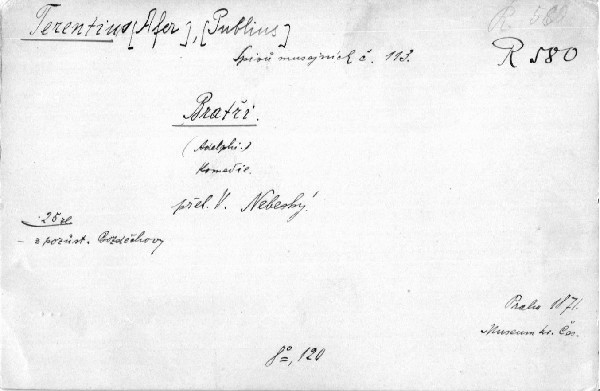 R 580
Terentius [Afer], [Publius]
Spisů musejních č. 113.
R 580
Bratři.
(Adelphi.)
Komedie.
přel. V. Nebeský.
25 zl
- z pozůst. Bozděchovy
Praha 1871.
Museum kr. Čes.
8°, 120